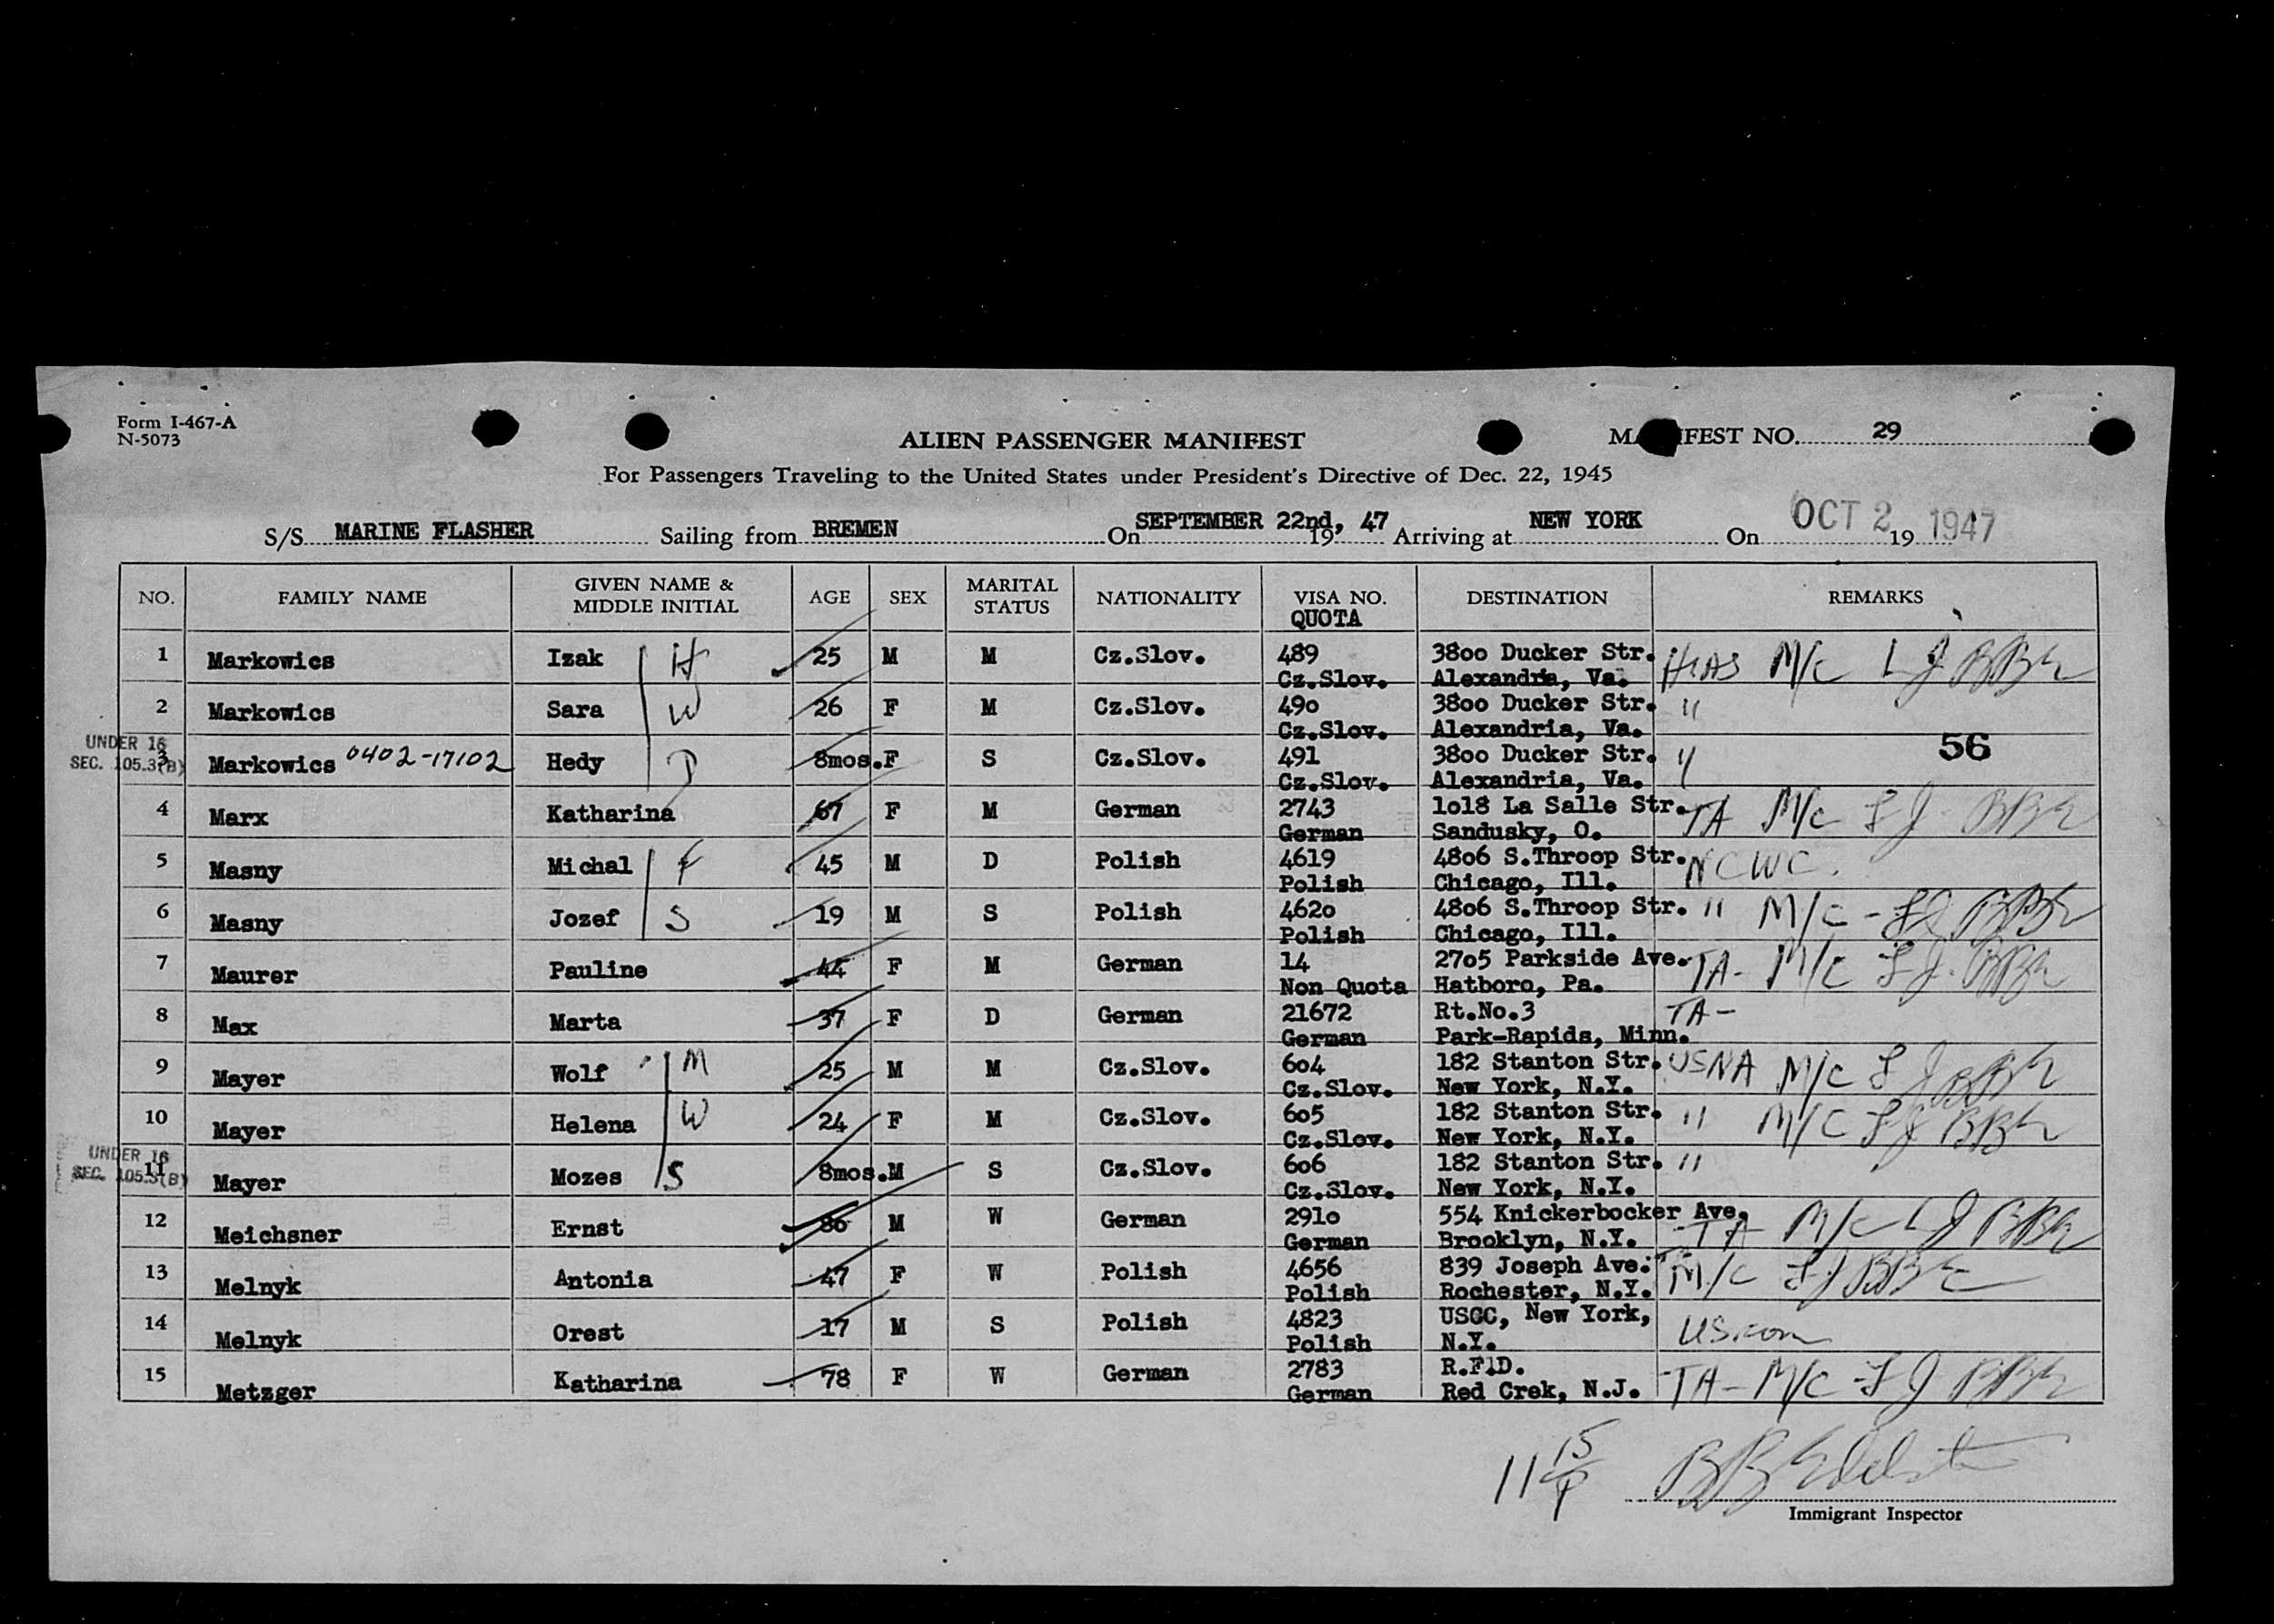 Form I-467-A
N-5073
ALIEN PASSENGER MANIFEST
MANIFEST NO. 29
For Passengers Traveling to the United States under President's Directive of Dec. 22, 1945
S/S MARINE FLASHER Sailing from BREMEN On SEPTEMBER 22nd, 19 47 Arriving at NEW YORK On OCT 2 19 1947
NO. FAMILY NAME GIVEN NAME & MIDDLE INITIAL AGE SEX MARITAL STATUS NATIONALITY VISA NO. QUOTA DESTINATION REMARKS
1 Markowics Izak H 25 M M Cz.Slov. 489 3800 Ducker Str. HIAS M/C
Cz.Slov. Alexandria, Va.
2 Markowics Sara W 26 F M Cz.Slov. 490 3800 Ducker Str. "
Cz.Slov. Alexandria, Va.
UNDER 16
SEC. 105.3(B)
3 Markowics 0402-17102 Hedy D 8mos. F S Cz.Slov. 491 3800 Ducker Str. " 56
Cz.Slov. Alexandria, Va.
4 Marx Katharina 67 F M German 2743 1018 La Salle Str. TA M/C
German Sandusky, O.
5 Masny Michal F 45 M D Polish 4619 4806 S.Throop Str. NCWC.
Polish Chicago, Ill.
6 Masny Jozef S 19 M S Polish 4620 4806 S.Throop Str. " M/C -
Polish Chicago, Ill.
7 Maurer Pauline 44 F M German 14 2705 Parkside Ave. TA- M/C
Non Quota Hatboro, Pa.
8 Max Marta 37 F D German 21672 Rt.No.3 TA-
German Park-Rapids, Minn.
9 Mayer Wolf M 25 M M Cz.Slov. 604 182 Stanton Str. USNA M/C
Cz.Slov. New York, N.Y.
10 Mayer Helena W 24 F M Cz.Slov. 605 182 Stanton Str. " M/C
Cz.Slov. New York, N.Y.
UNDER 16
SEC. 105.3(B)
11 Mayer Mozes S 8mos. M S Cz.Slov. 606 182 Stanton Str. "
Cz.Slov. New York, N.Y.
12 Meichsner Ernst 86 M W German 2910 554 Knickerbocker Ave. TA M/C
German Brooklyn, N.Y.
13 Melnyk Antonia 47 F W Polish 4656 839 Joseph Ave. M/C
Polish Rochester, N.Y.
14 Melnyk Orest 17 M S Polish 4823 USCC, New York, US.com
Polish N.Y.
15 Metzger Katharina 78 F W German 2783 R.F1D. TA- M/C
German Red Crek, N.J.
11
Immigrant Inspector